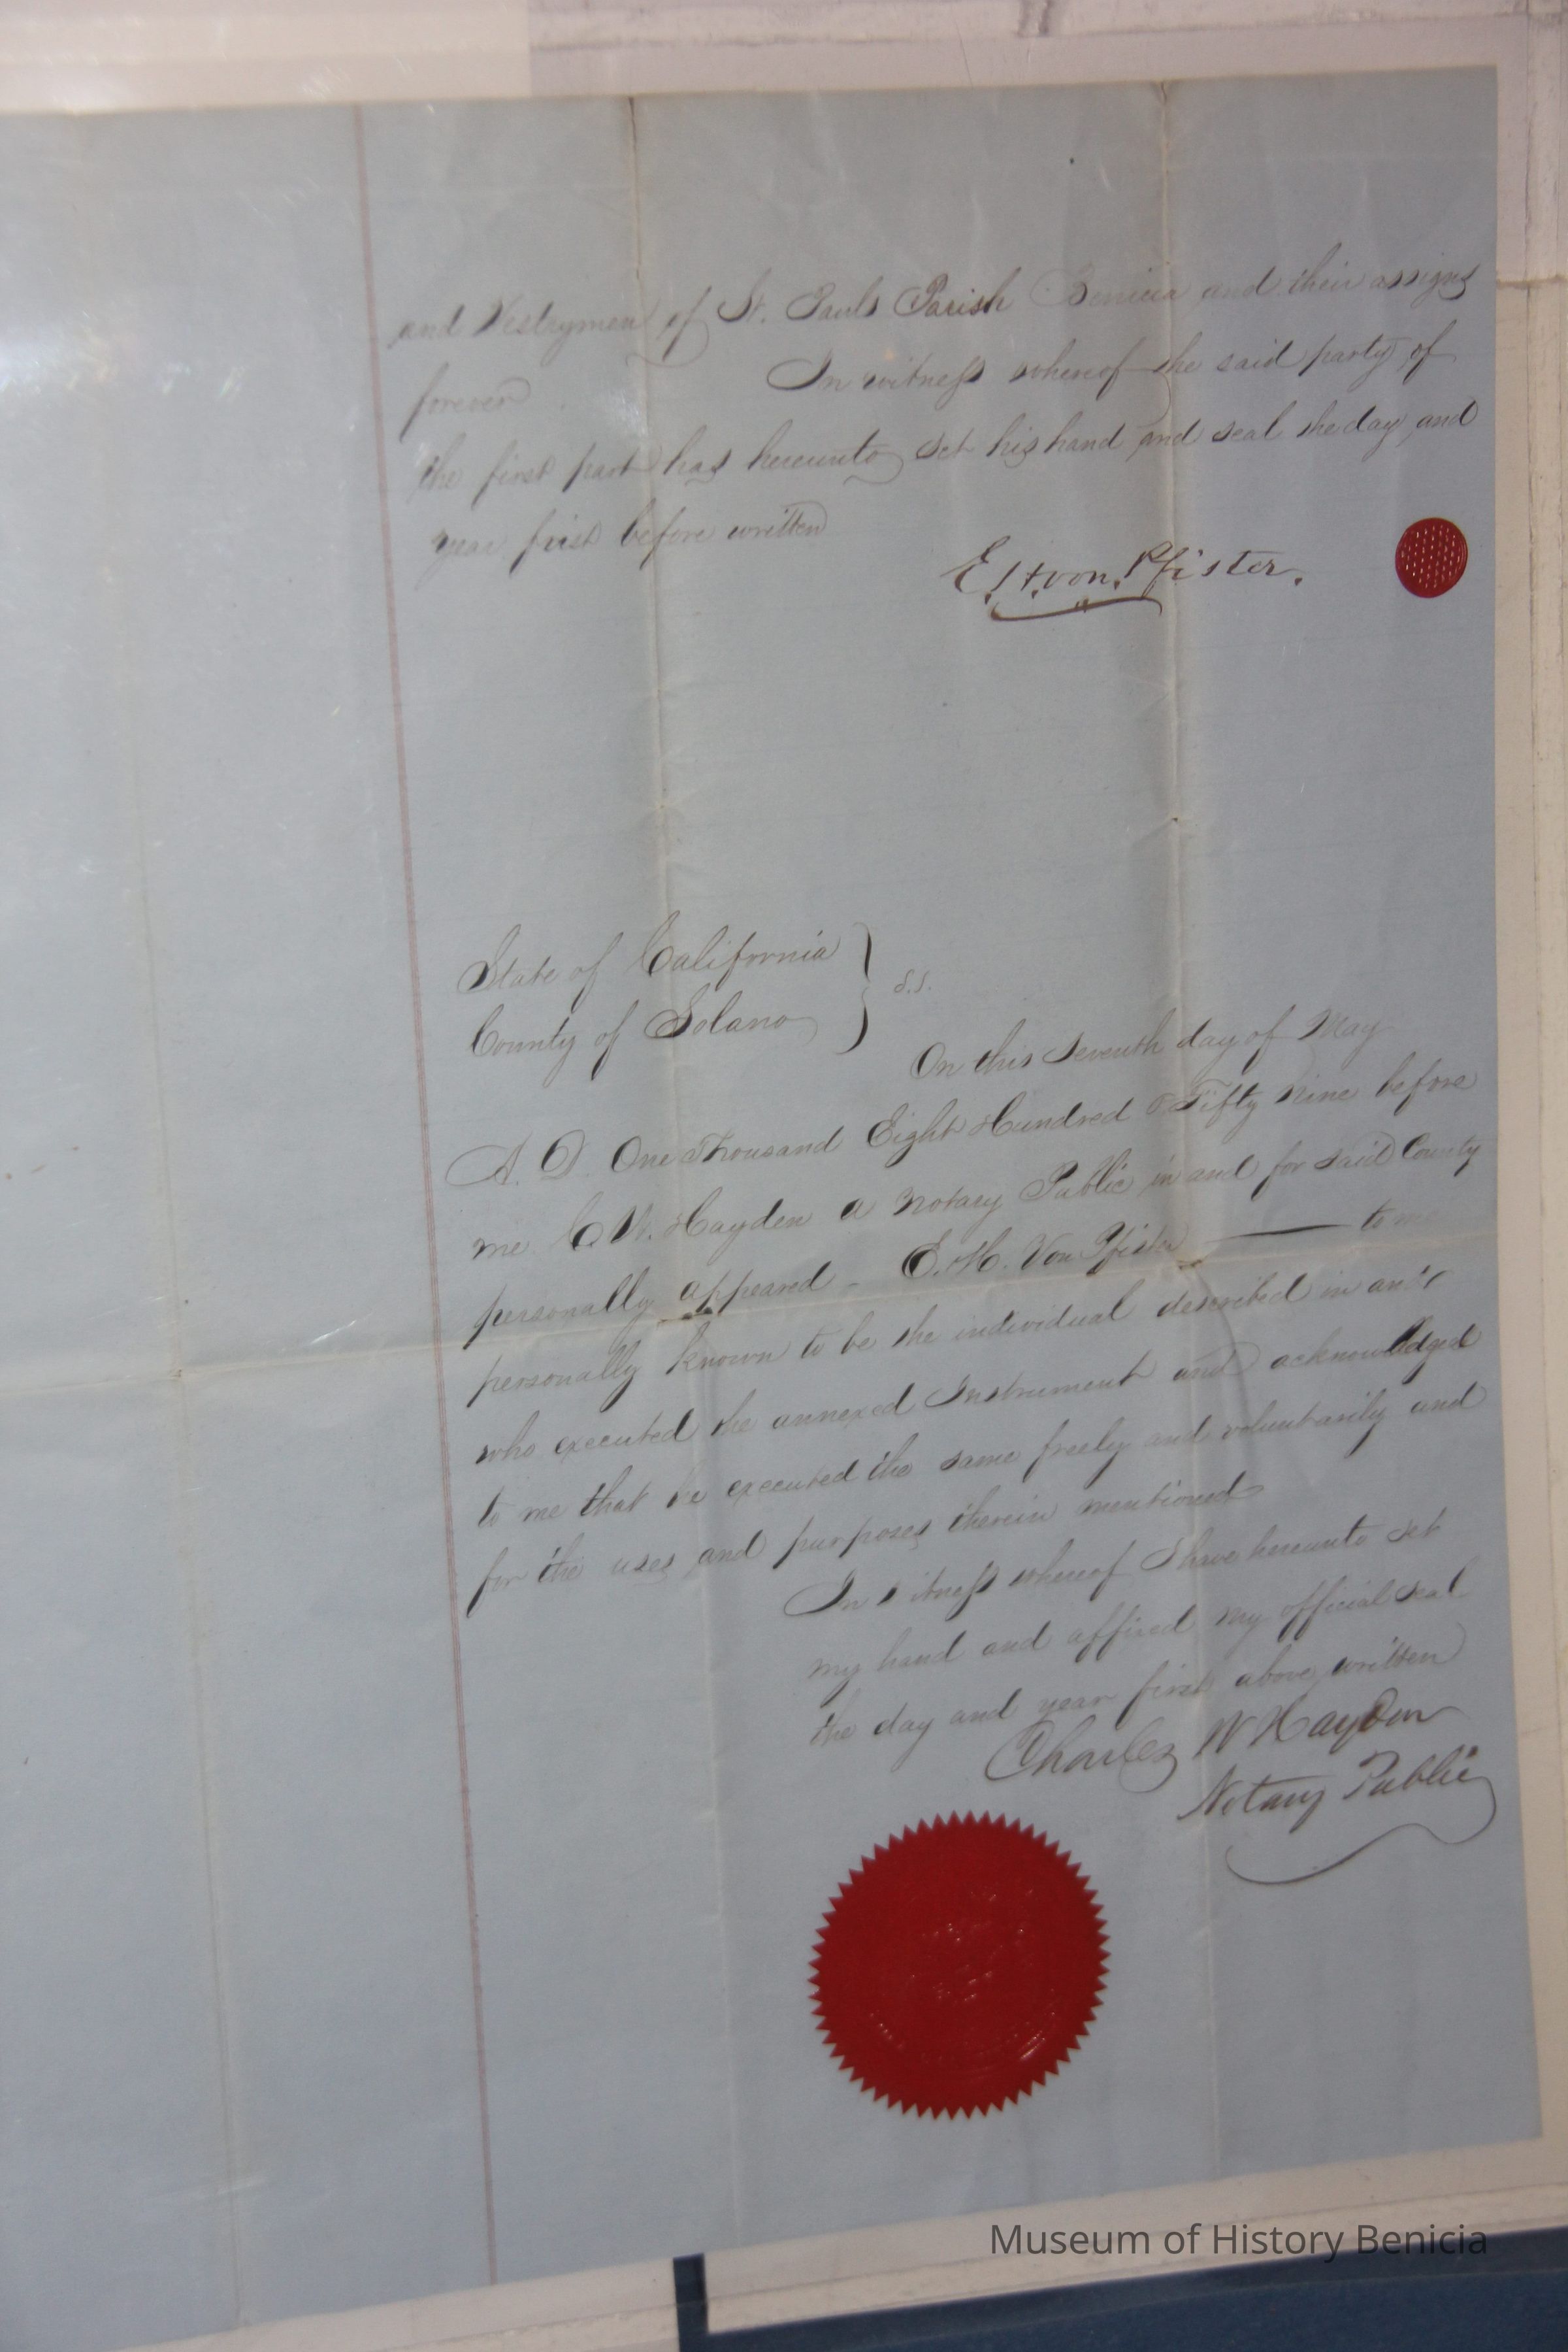 and Vestrymen of St. Pauls Parish Benicia and their assigns
forever In witness whereof the said party of
the first part has hereunto set his hand and seal the day and
year first before written
E. H. von. Pfister.
State of California
County of Solano } s.s.
On this Seventh day of May
A. D. One Thousand Eight Hundred & Fifty Nine before
me C. W. Hayden a Notary Public in and for said County
personally appeared - E. H. Von Pfister — to me
personally known to be the individual described in and
who executed the annexed Instrument and acknowledged
to me that he executed the same freely and voluntarily and
for the uses and purposes therein mentioned
In witness whereof I have hereunto set
my hand and affixed my official seal
the day and year first above written
Charles W Hayden
Notary Public
Museum of History Benicia